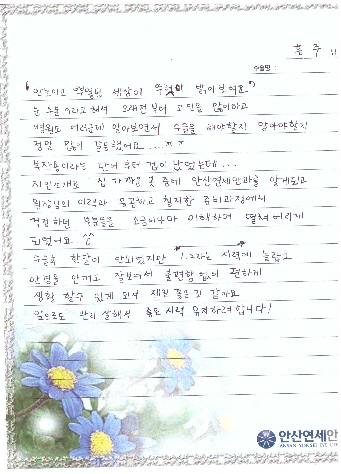 수술명 :
"안보이던 세상이 밝아보여요"
눈 수술 이라고 해서 오래전부터 고민을 많이하고
병원도 여러군데 알아보면서 수술을 해야할지 말아야할지
정말 많이 갈등했어요....ㅠㅠ
부작용이라는 단어 부터 겁이 났었는데...
지인소개로 집 가까운 곳 중에 안산연세안과를 알게되고
원장님의 이력과 꼼꼼하고 철저한 준비과정에서
걱정하던 부분들을 조금이나마 이해하며 떨쳐버리게
되었어요 ^^
수술후 한달이 안되었지만 1.2라는 시력에 놀랍고
안경을 안껴도 잘보여서 불편함 없이 편하게
생활 할수 있게 되서 제일 좋은 것 같아요
앞으로도 관리 잘해서 좋은 시력 유지하려 합니다!
안산연세안
ANSAN YONSEI EYE